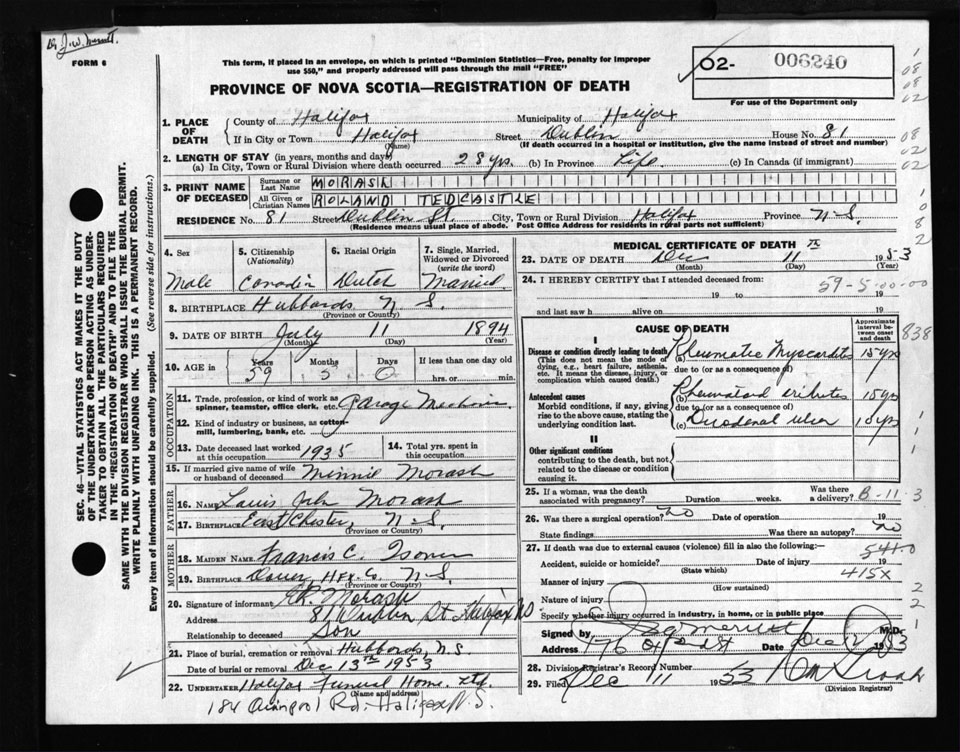 Dr. J.W. Merritt.
FORM 6
This form, if placed in an envelope, on which is printed "Dominion Statistics—Free, penalty for improper
use $50," and properly addressed will pass through the mail "FREE"
PROVINCE OF NOVA SCOTIA—REGISTRATION OF DEATH
02- 006240
For use of the Department only
1. PLACE OF DEATH
County of Halifax Municipality of Halifax
If in City or Town Halifax Street Dublin House No. 81
(Name) (If death occurred in a hospital or institution, give the name instead of street and number)
2. LENGTH OF STAY (in years, months and days)
(a) In City, Town or Rural Division where death occurred 28 yrs. (b) In Province Life (c) In Canada (if immigrant)
3. PRINT NAME OF DECEASED
Surname or Last Name MORASH
All Given or Christian Names ROLAND TEDCASTLE
RESIDENCE No. 81 Street Dublin St. City, Town or Rural Division Halifax Province N-S.
(Residence means usual place of abode. Post Office Address for residents in rural parts not sufficient)
4. Sex Male
5. Citizenship (Nationality)
6. Racial Origin Dutch
7. Single, Married, Widowed or Divorced (write the word) Married
8. BIRTHPLACE Hubbards N S.
(Province or Country)
9. DATE OF BIRTH July 11 1894
(Month) (Day) (Year)
10. AGE in Years 59 Months 5 Days 0 If less than one day old
hrs. or min.
OCCUPATION
11. Trade, profession, or kind of work as spinner, teamster, office clerk, etc. Garage Mechanic
12. Kind of industry or business, as cotton-mill, lumbering, bank, etc.
13. Date deceased last worked at this occupation 1935
14. Total yrs. spent in this occupation
15. If married give name of wife or husband of deceased Minnie Morash
FATHER
16. Name Louis John Morash
17. Birthplace East Chester, N-S.
(Province or Country)
MOTHER
18. Maiden Name Francis C.
19. Birthplace Dover, Hfx. Co. N-S.
(Province or Country)
20. Signature of informant Morash
Address 81 Dublin St Halifax NS
Relationship to deceased Son
21. Place of burial, cremation or removal Hubbards, N.S.
Date of burial or removal Dec 13th 1953
22. UNDERTAKER Halifax Funeral Home Ltd.
(Name and address)
184 Rd. Halifax N.S.
MEDICAL CERTIFICATE OF DEATH
23. DATE OF DEATH Dec 11 1953
(Month) (Day) (Year)
24. I HEREBY CERTIFY that I attended deceased from:
59-5-00-00
19 to 19
and last saw h alive on 19
CAUSE OF DEATH
Approximate interval between onset and death
I
Disease or condition directly leading to death (a) Rheumatic Myocarditis 15 yrs
(This does not mean the mode of dying, e.g., heart failure, asthenia, etc. It means the disease, injury, or complication which caused death.)
due to (or as a consequence of)
Antecedent causes
Morbid conditions, if any, giving rise to the above cause, stating the underlying condition last.
(b) Rheumatoid 15 yrs
due to (or as a consequence of)
(c) Duodenal ulcer 10 yrs
II
Other significant conditions
contributing to the death, but not related to the disease or condition causing it.
25. If a woman, was the death associated with pregnancy? Duration weeks. Was there a delivery? B-11
26. Was there a surgical operation? No Date of operation
State findings Was there an autopsy? No
27. If death was due to external causes (violence) fill in also the following:—
541-0
Accident, suicide or homicide? Date of injury
(State which) 415X
Manner of injury
(How sustained)
Nature of injury
Specify whether injury occurred in industry, in home, or in public place
Signed by Merritt M.D.
Address 176 Date Dec 12 1953
28. Division Registrar's Record Number
29. Filed Dec 11 1953
(Division Registrar)
SEC. 46—VITAL STATISTICS ACT MAKES IT THE DUTY
OF THE UNDERTAKER OR PERSON ACTING AS UNDER-
TAKER TO OBTAIN ALL THE PARTICULARS REQUIRED
IN THE "REGISTRATION OF DEATH" AND TO FILE THE
SAME WITH THE DIVISION REGISTRAR WHO SHALL ISSUE THE BURIAL PERMIT.
WRITE PLAINLY WITH UNFADING INK. THIS IS A PERMANENT RECORD.
Every item of information should be carefully supplied. (See reverse side for instructions.)
838